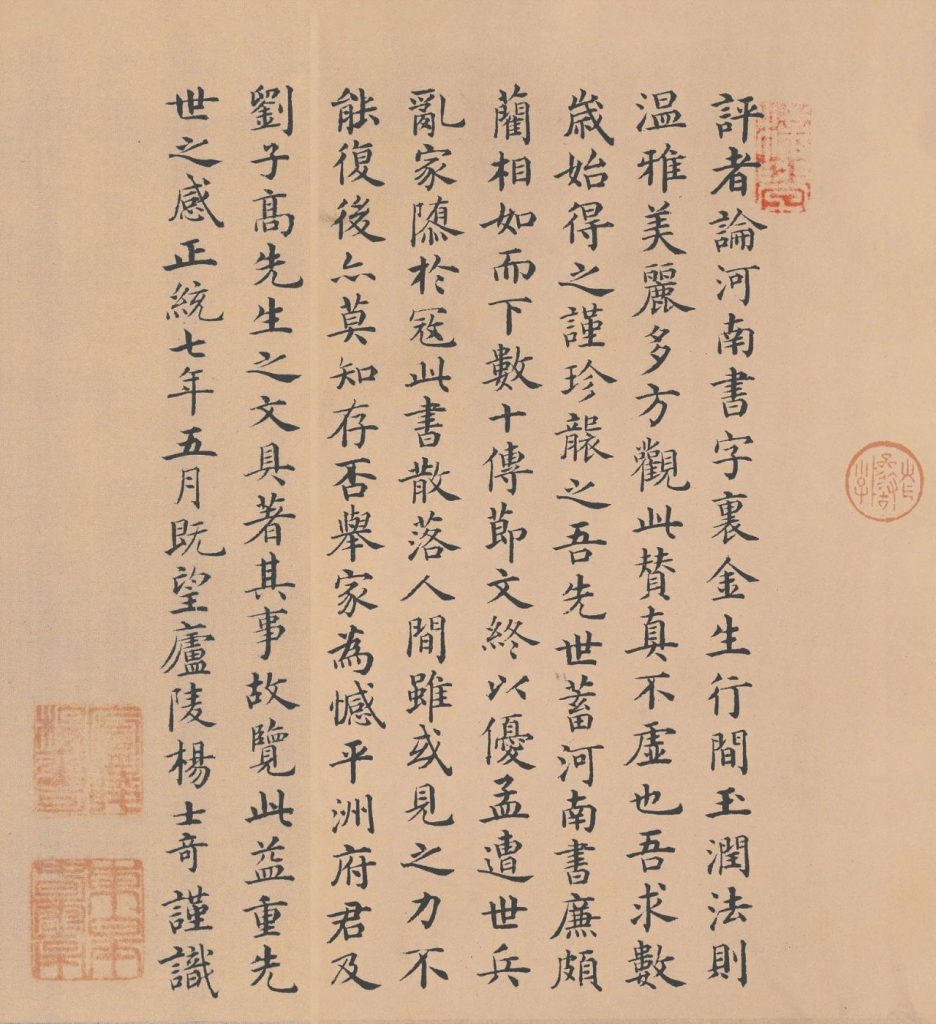 評者論河南書字裏金生行間玉潤法則
温雅美麗多方觀此賛真不虛也吾求數
歳始得之謹珍襲之吾先世蓄河南書廉頗
藺相如而下數十傳節文終以優孟遭世兵
亂家隳於冦此書散落人間雖或見之力不
能復後亦莫知存否舉家為憾平洲府君及
劉子髙先生之文具著其事故覽此益重先
世之感正統七年五月既望廬陵楊士竒謹識